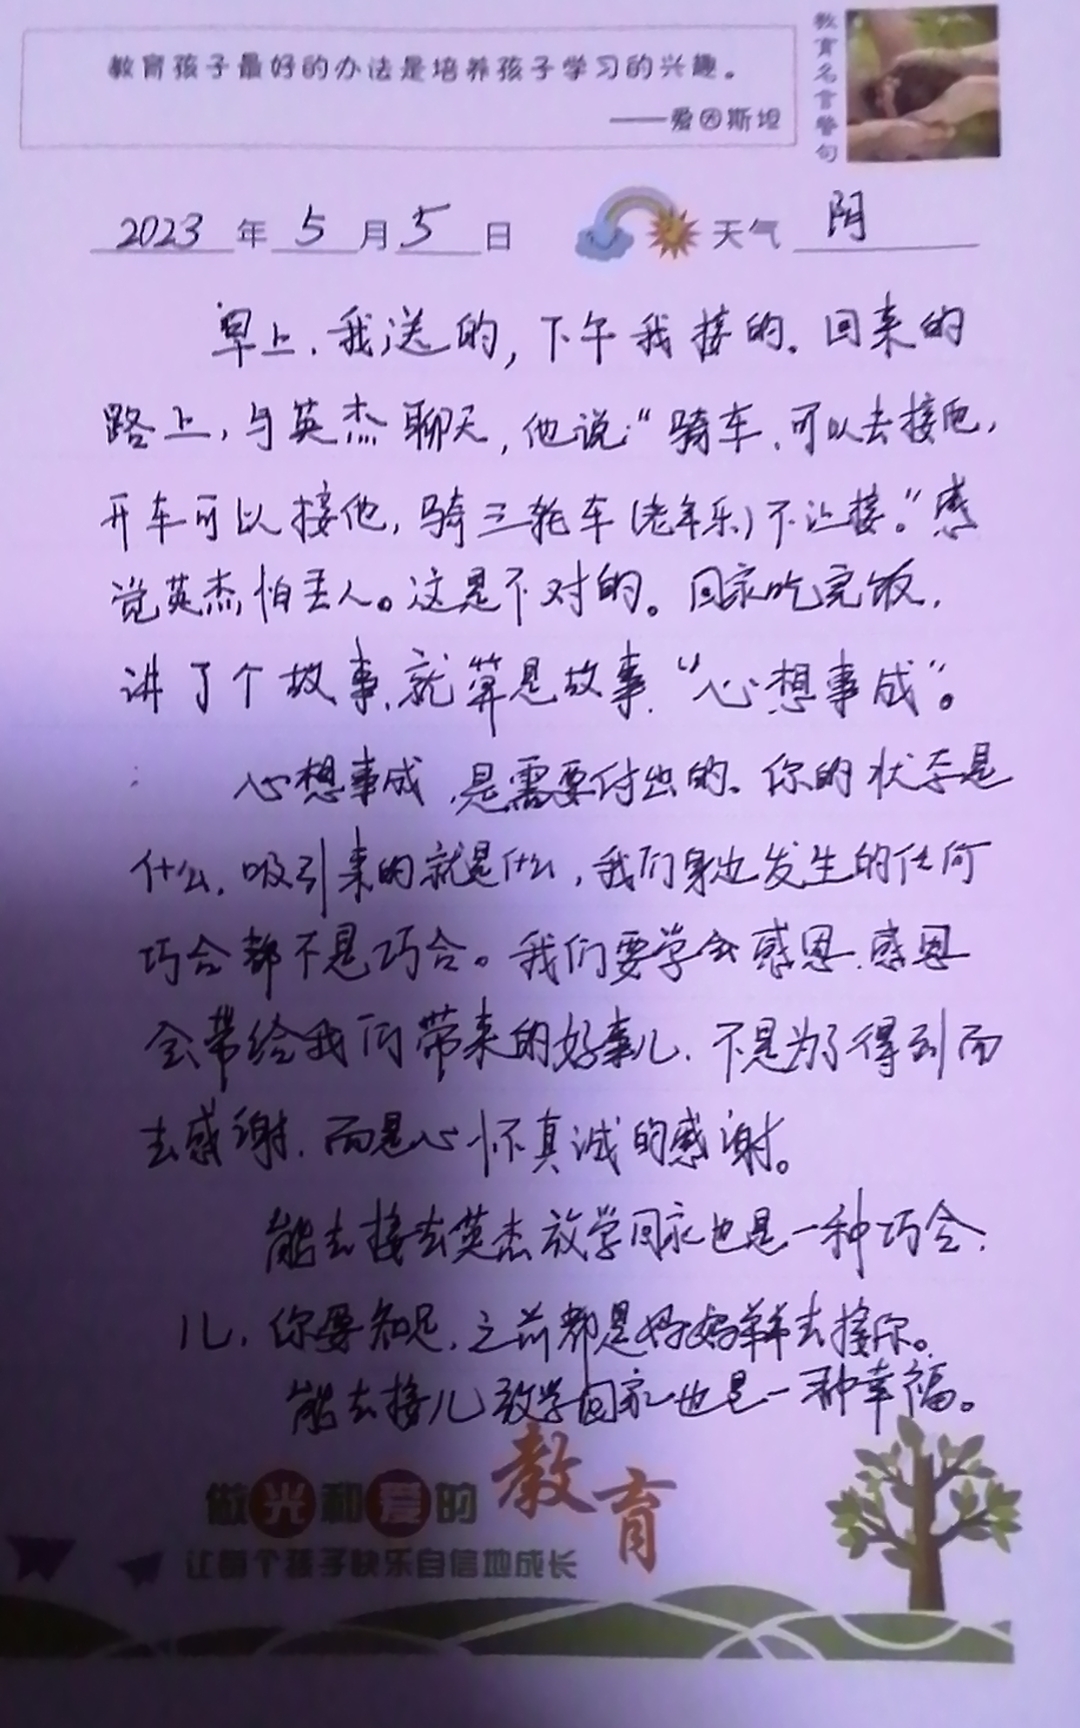 教育孩子最好的办法是培养孩子学习的兴趣。
——爱因斯坦
教育名言警句
2023年5月5日 天气 阴
早上,我送的,下午我接的。回来的
路上,与英杰聊天,他说:“骑车,可以去接他,
开车可以接他,骑三轮车(老年乐)不让接。”感
觉英杰怕丢人。这是不对的。回家吃完饭,
讲了个故事,就算是故事“心想事成”。
心想事成,是需要付出的。你的状态是
什么,吸引来的就是什么,我们身边发生的任何
巧合都不是巧合。我们要学会感恩,感恩
会带给我们带来的好事儿,不是为了得到而
去感谢,而是心怀真诚的感谢。
能去接去英杰放学回家也是一种巧合.
儿,你要知足,之前都是妈妈去接你。
能去接儿放学回家也是一种幸福。
做光和爱的教育
让每个孩子快乐自信地成长